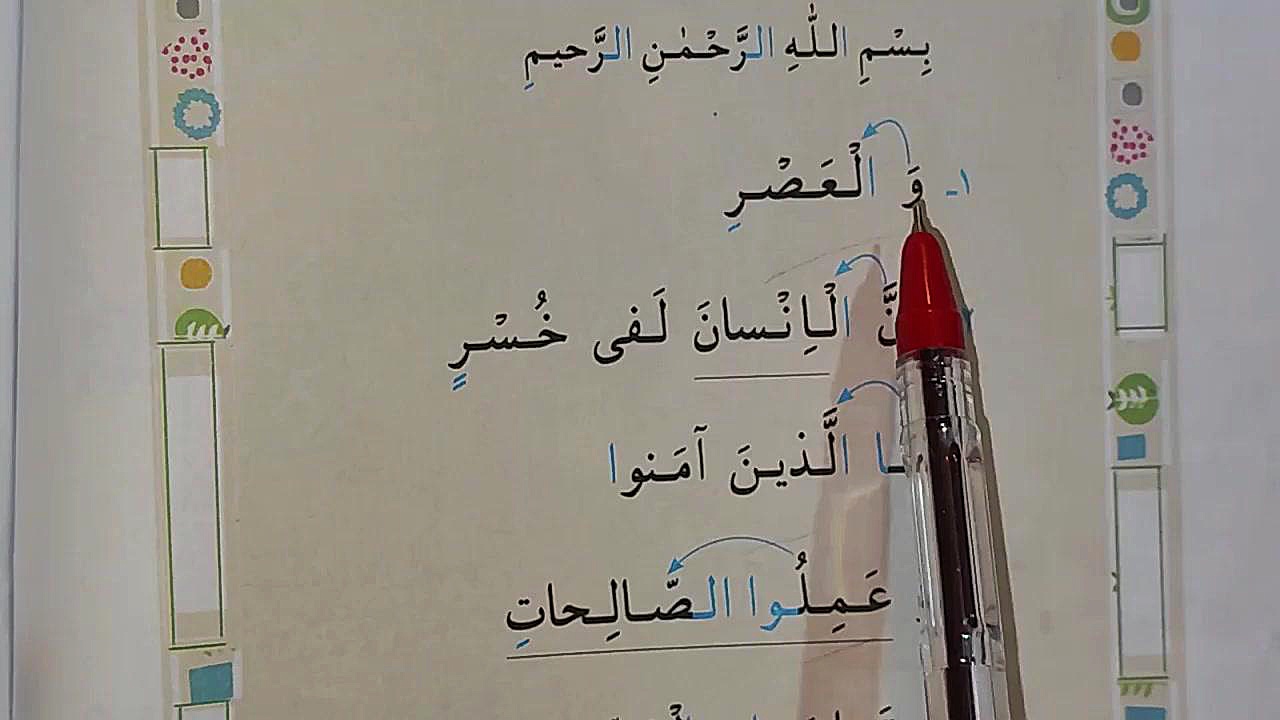 بِسْمِ اللّٰهِ الرَّحْمٰنِ الرَّحیمِ
۱ـ وَ الْعَصْرِ
الْاِنْسانَ لَفی خُسْرٍ
الَّذینَ آمَنوا
عَمِلُوا الصّالِحاتِ